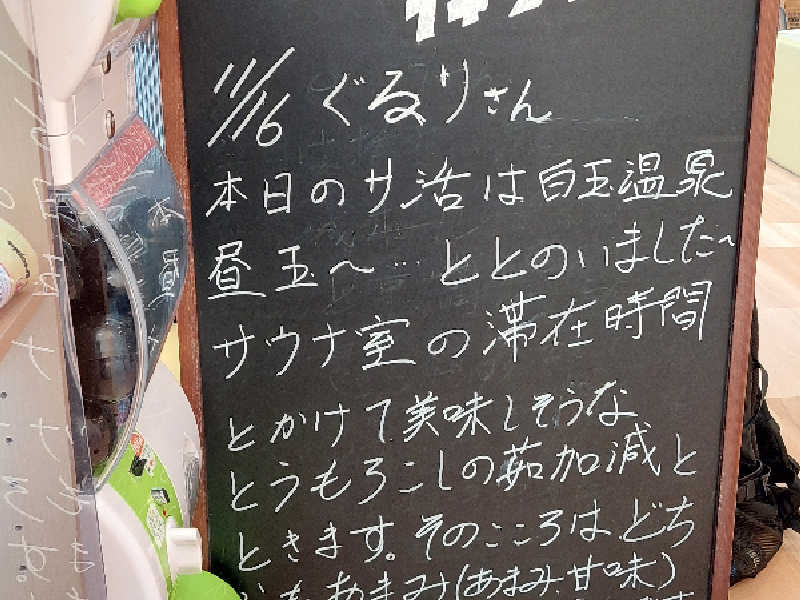 11/16 ぐるりさん
本日のサ活は白玉温泉
昼玉〜…ととのいました〜
サウナ室の滞在時間
とかけて美味しそうな
とうもろこしの茹加減と
ときます。そのこころはどち
あまみ(あまみ、甘味)